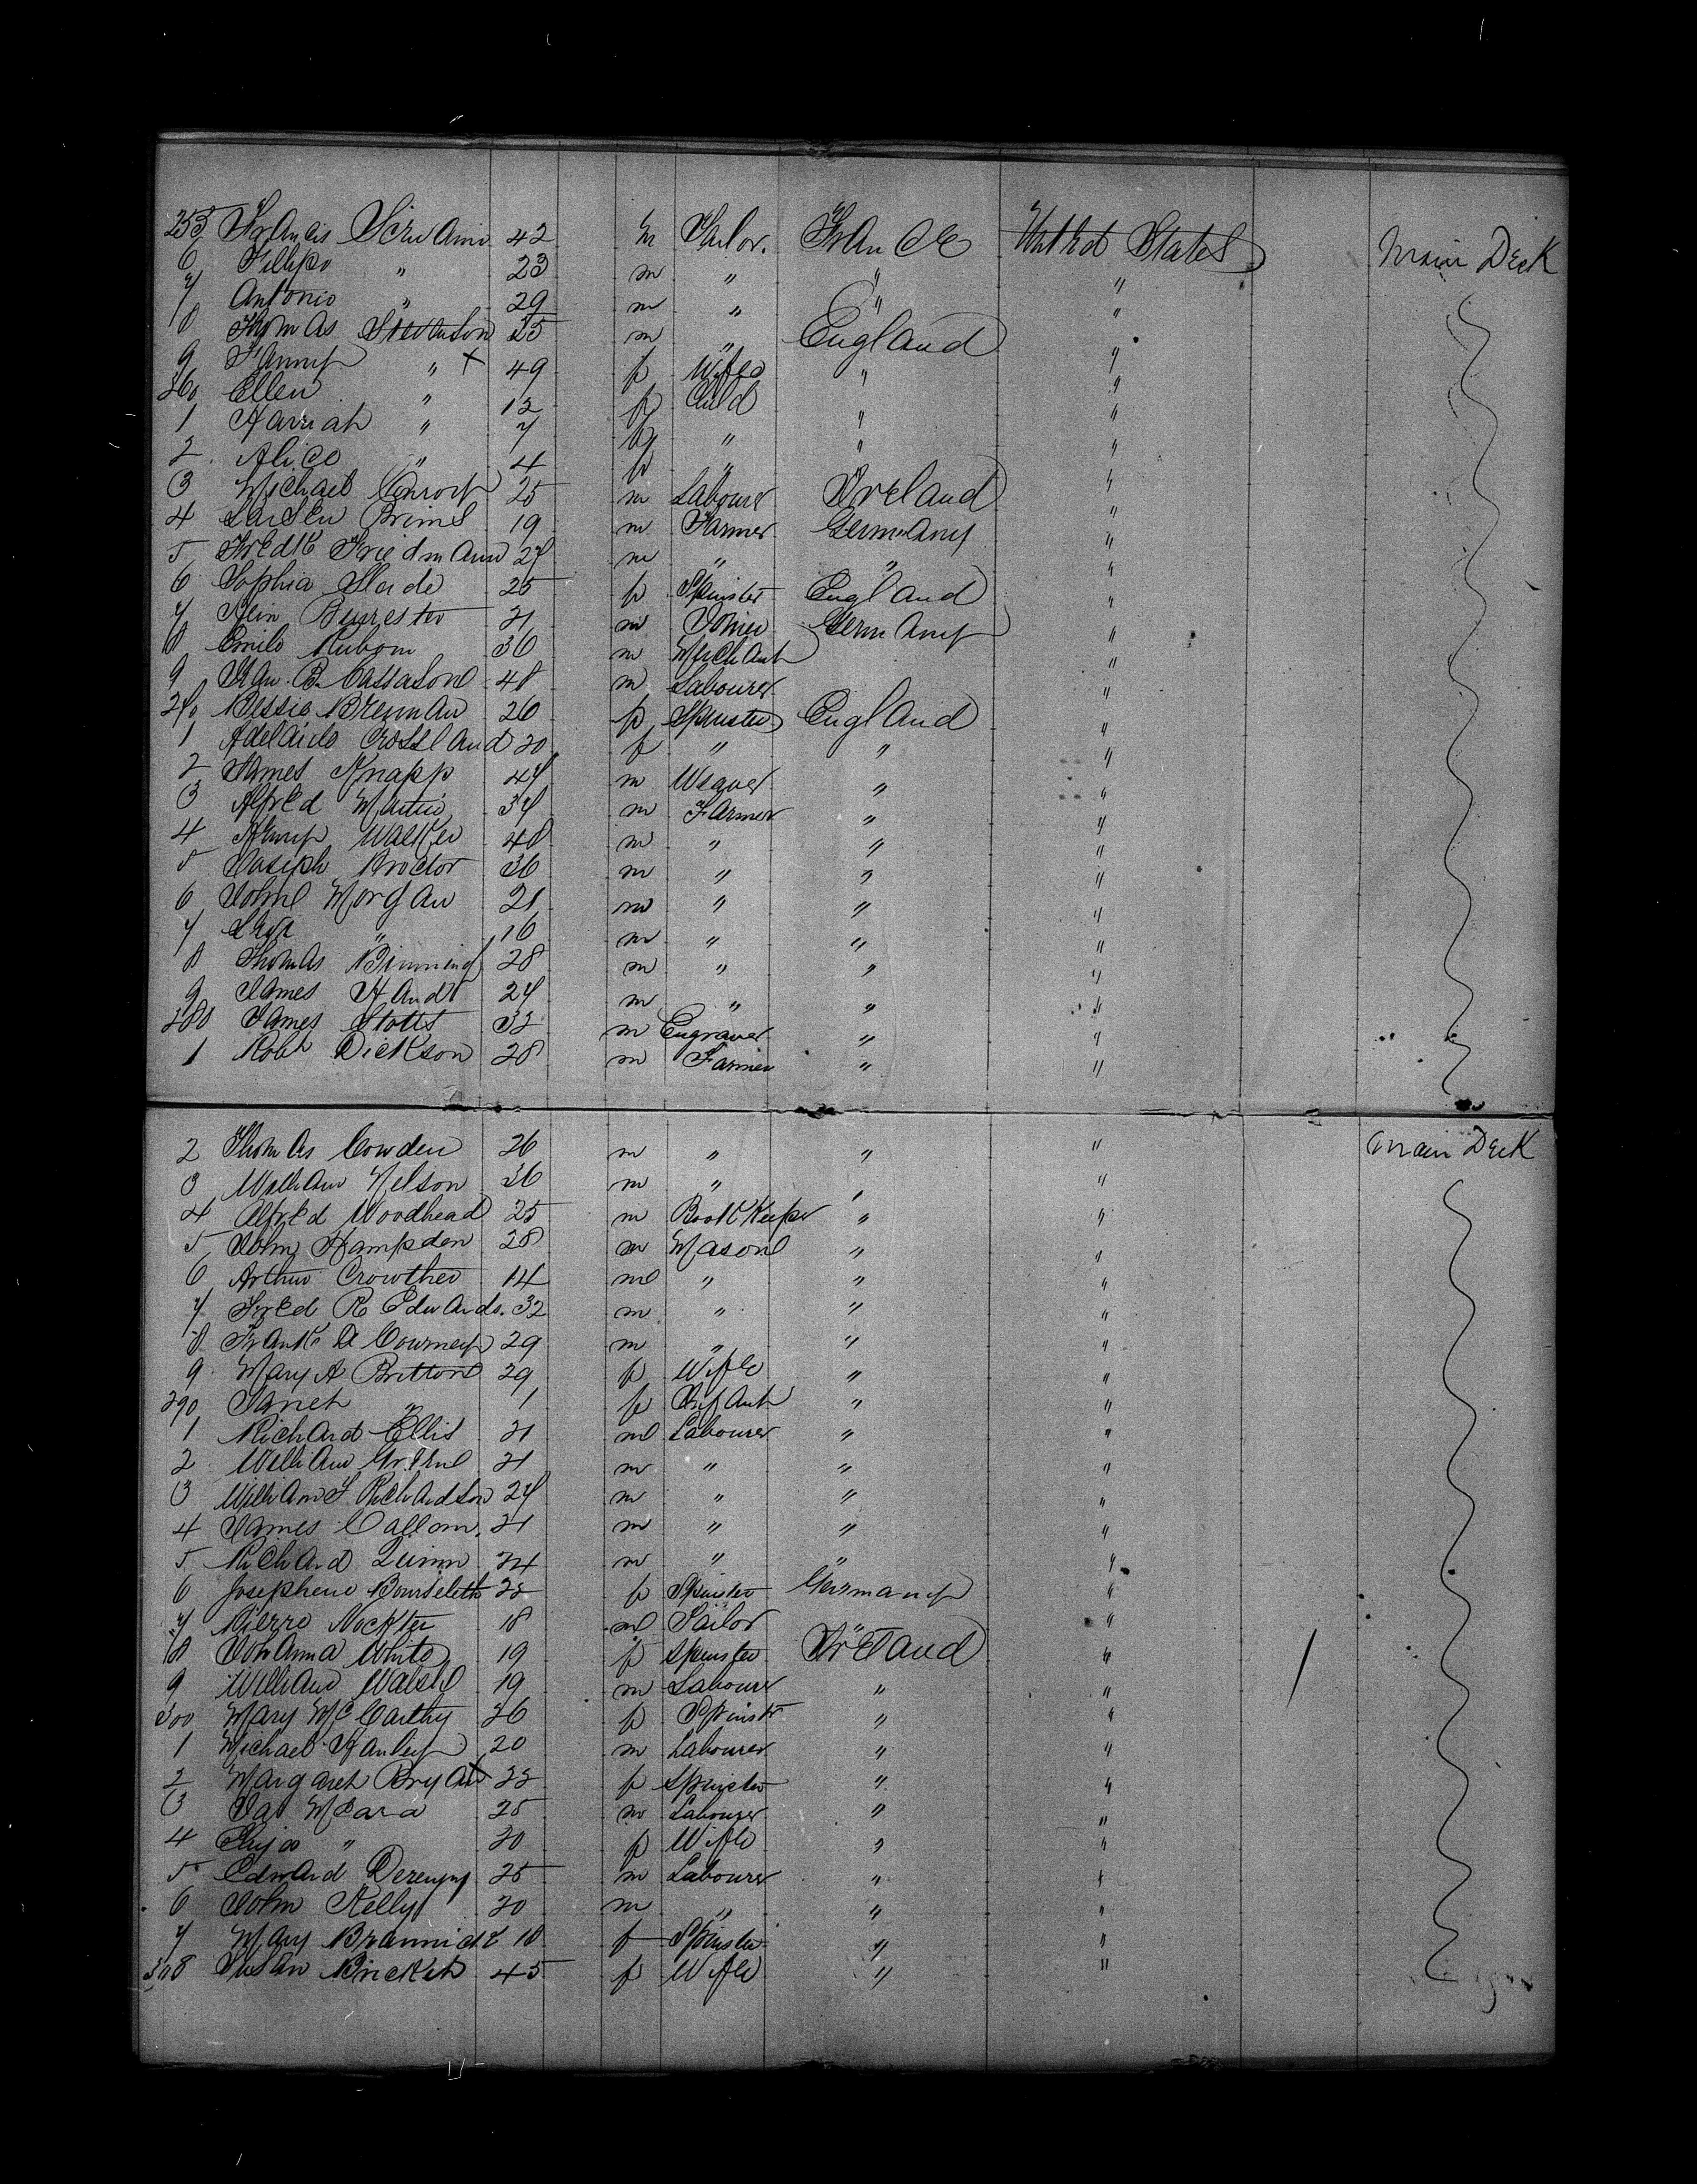 255 Francis 42 m Tailor. France United States Main Deck
6 Fillipo " 23 m " " "
7 Antonio " 29 m " " "
8 Thomas Stevenson 55 m " England "
9 Fanny " x 49 f Wife " "
260 Ellen " 12 f Child " "
1 Hannah " 7 f " " "
2 Alice " 4 f " " "
3 Michael Conroy 25 m Labourer Ireland "
4 19 m Farmer Germany "
5 Fredk Friedmann 27 m " " "
6 Sophia Slade 25 f Spinster England "
7 Hein 21 m Joiner Germany "
8 Emile 36 m Merchant "
9 B. 48 m Labourer "
270 Bessie Brennan 26 f Spinster England "
1 Adelaide Crossland 20 f " " "
2 James Knapp 47 m Weaver " "
3 Alfred Martin 37 m Farmer " "
4 Henry Walker 48 m " " "
5 Joseph Proctor 36 m " " "
6 John Morgan 21 m " " "
7 " 16 m " " "
8 Thomas Binning 28 m " " "
9 James Hand 27 m " " "
280 James Stotts 32 m Engraver " "
1 Robt Dickson 28 m Farmer " "
2 Thomas Cowden 26 m " " " Main Deck
3 William Nelson 36 m " " "
4 Alfred Woodhead 25 m Book Keeper " "
5 John Hampden 28 m Mason " "
6 Arthur Crowther 14 m " " "
7 Fred R Edwards. 32 m " " "
8 Frank D Courney 29 m " " "
9 Mary A Britton 29 f Wife " "
290 Janet " 1 f Infant " "
1 Richard Ellis 21 m Labourer " "
2 William Greene 21 m " " "
3 William T Richardson 27 m " " "
4 James Callom. 21 m " " "
5 Richard Quinn 24 m " " "
6 Josephene 22 f Spinster Germany "
7 Pierre 18 m Sailor " "
8 Johanna White 19 f Spinster Ireland "
9 William Walsh 19 m Labourer " "
300 Mary McCarthy 26 f Spinstr " "
1 Michael Hanley 20 m Labourer " "
2 Margaret Bryan x 22 f Spinster " "
3 Jas Meara 25 m Labourer " "
4 Eliza " 20 f Wife " "
5 Edward 25 m Labourer " "
6 John Kelly 20 m " " "
7 Mary Brannick 18 f Spinster " "
308 Susan Bricket 45 f Wife " "